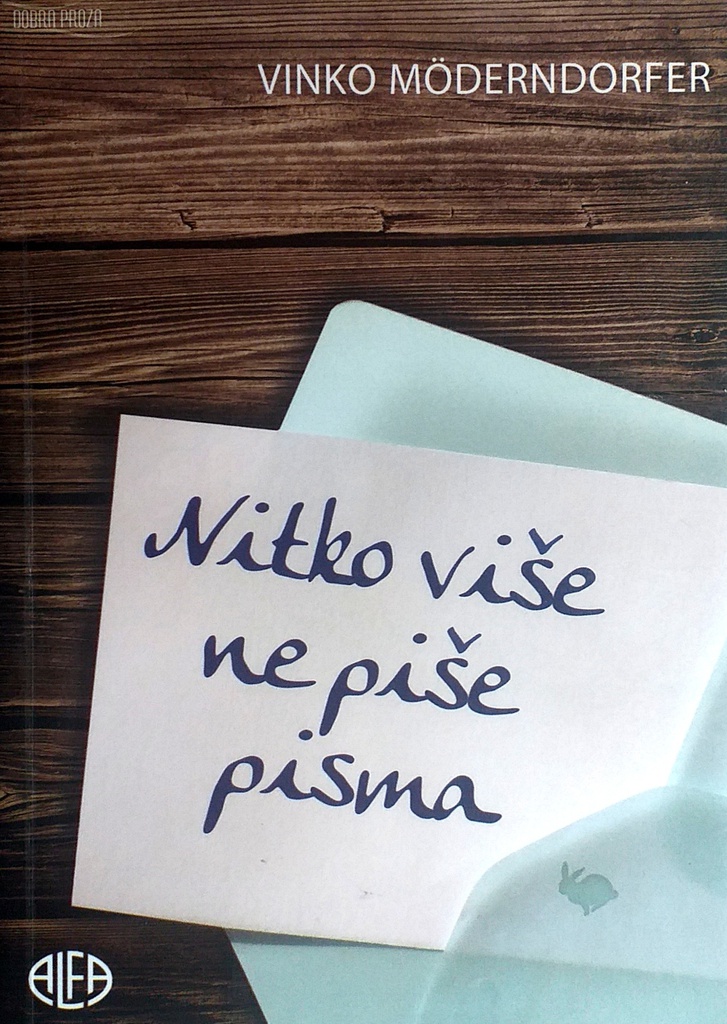 DOBRA PROZA
VINKO MÖDERNDORFER
Nitko više
ne piše
pisma
ALFA